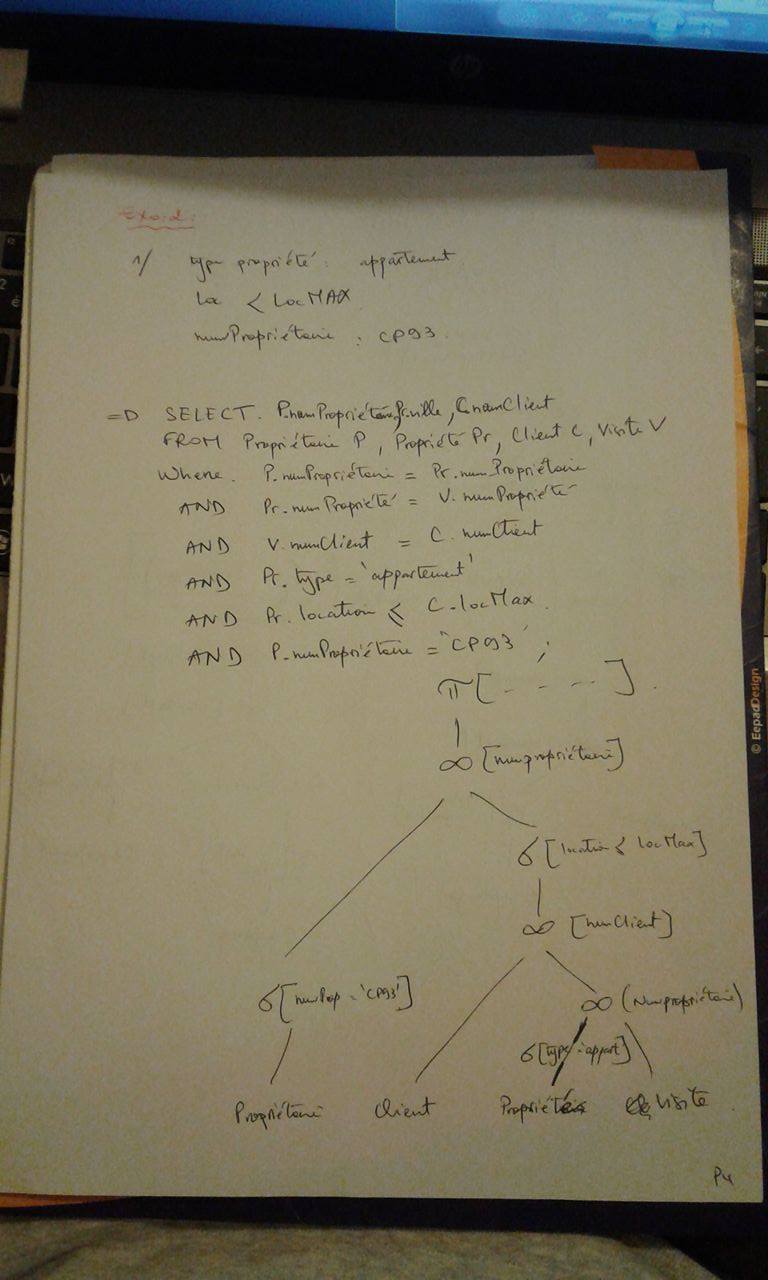 Exo id:
1/ type propriété : appartement
loc < locMAX
numPropriétaire : CP93.
=D SELECT. P.numPropriétaire, Pr.ville, C.numClient
FROM Propriétaire P, Propriété Pr, Client C, Visite V
Where. P.numPropriétaire = Pr.numPropriétaire
AND Pr.numPropriété = V.numPropriété
AND V.numClient = C.numClient
AND Pr.type = 'appartement'
AND Pr.location ⩽ C.locMax.
AND P.numPropriétaire = 'CP93' ;
π[- - - -].
∞ [numpropriétaire]
σ[location ⩽ locMax]
∞ [numClient]
σ[numProp = 'CP93'] ∞ (Numpropriétaire)
σ[type = appart]
Propriétaire Client Propriété Visite
P4
© EepadDesign